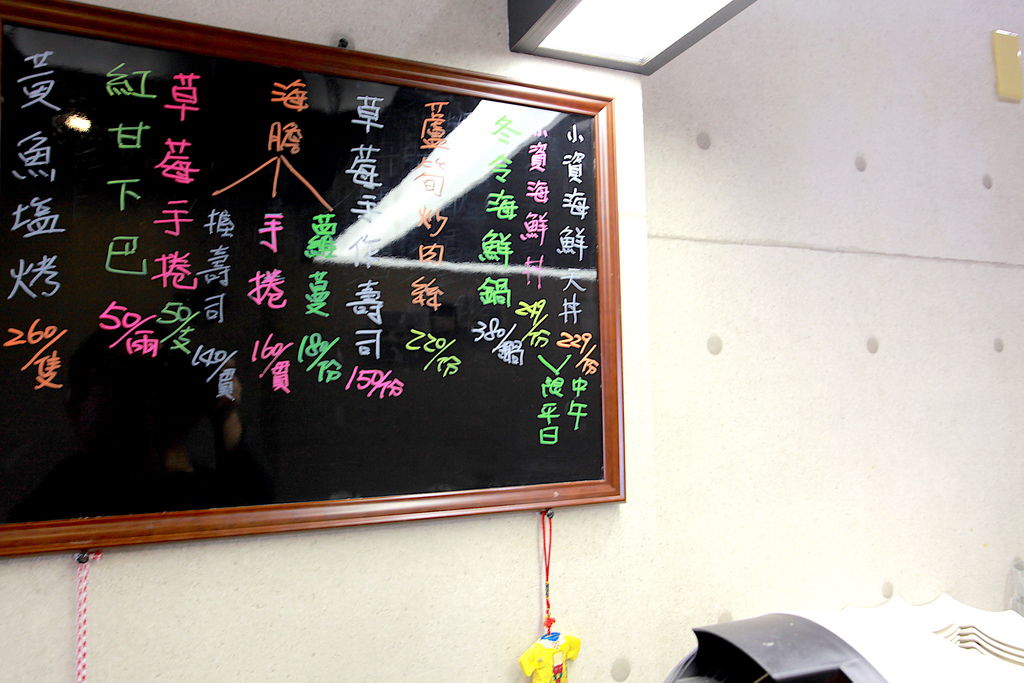 小資海鮮天丼 229/份
小資海鮮丼 249/份
中午
限平日
冬令海鮮鍋 380/鍋
蘆筍炒肉絲 220/份
草莓手作壽司 150/份
海膽
蘿蔓 180/份
手捲 160/貫
壽司 140/貫
草莓手捲 50/支
紅甘下巴 50/兩
黃魚塩烤 260/隻